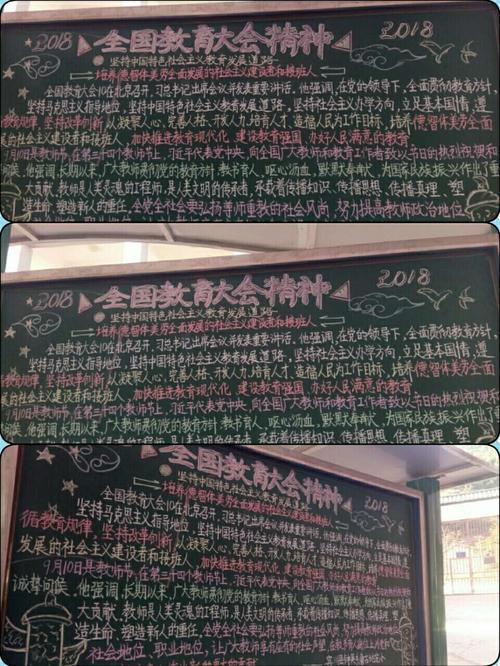 2018 全国教育大会精神 2018
坚持中国特色社会主义教育发展道路
培养德智体美劳全面发展的社会主义建设者和接班人
全国教育大会10在北京召开,习近平书记出席会议并发表重要讲话,他强调,在党的领导下,全面贯彻教育方针,
坚持马克思主义指导地位,坚持中国特色社会主义教育发展道路,坚持社会主义办学方向,立足基本国情,遵
教育规律,坚持改革创新,以凝聚人心,完善人格,开发人力,培育人才,造福人民为工作目标,培养德智体美劳全面
的社会主义建设者和接班人,加快推进教育现代化,建设教育强国,办好人民满意的教育。
9月10日是教师节,在第三十四个教师节上,习近平代表党中央,向全国广大教师和教育工作者致以节日的热烈祝贺和
他强调,长期以来,广大教师贯彻党的教育方针,教书育人,呕心沥血,默默奉献,为国家民族振兴作出了
大贡献,教师是人类灵魂的工程师,是人类文明的传承者,承载着传播知识、传播思想、传播真理、塑
造生命、塑造新人的重任,全党全社会要弘扬尊师重教的社会风尚,努力提高教师政治地位
2018 全国教育大会精神 2018
坚持中国特色社会主义教育发展道路
培养德智体美劳全面发展的社会主义建设者和接班人
全国教育大会10在北京召开,习近平书记出席会议并发表重要讲话,他强调,在党的领导下,全面贯彻教育方针,
坚持马克思主义指导地位,坚持中国特色社会主义教育发展道路,坚持社会主义办学方向,立足基本国情,遵
教育规律,坚持改革创新,以凝聚人心,完善人格,开发人力,培育人才,造福人民为工作目标,培养德智体美劳全面
的社会主义建设者和接班人,加快推进教育现代化,建设教育强国,办好人民满意的教育。
9月10日是教师节,在第三十四个教师节上,习近平代表党中央,向全国广大教师和教育工作者致以节日的热烈祝贺和
他强调,长期以来,广大教师贯彻党的教育方针,教书育人,呕心沥血,默默奉献,为国家民族振兴作出了
大贡献,教师是人类灵魂的工程师,是人类文明的传承者,承载着传播知识、传播思想、传播真理、塑
全国教育大会精神 2018
坚持中国特色社会主义教育发展道路
培养德智体美劳全面发展的社会主义建设者和接班人
全国教育大会10在北京召开,习近平书记出席会议并发表重要讲话,他强调,在党的领导下,全面贯彻教育方针,
坚持马克思主义指导地位,坚持中国特色社会主义教育发展道路,坚持社会主义办学方向,立足基本国情,遵
循教育规律,坚持改革创新,以凝聚人心,完善人格,开发人力,培育人才,造福人民为工作目标,培养德智体美劳全面
发展的社会主义建设者和接班人,加快推进教育现代化,建设教育强国,办好人民满意的教育。
9月10日是教师节,在第三十四个教师节上,习近平代表党中央,向全国广大教师和教育工作者致以节日的热烈祝贺和
诚挚问候,他强调,长期以来,广大教师贯彻党的教育方针,教书育人,呕心沥血,默默奉献,为国家
大贡献,教师是人类灵魂的工程师,是人类文明的传承者,承载着传播知识、传播思想、传播真理、塑
造生命、塑造新人的重任,全党全社会要弘扬尊师重教的社会风尚,努力提高教师政治地位
社会地位,职业地位,让广大教师享有应有的社会声望